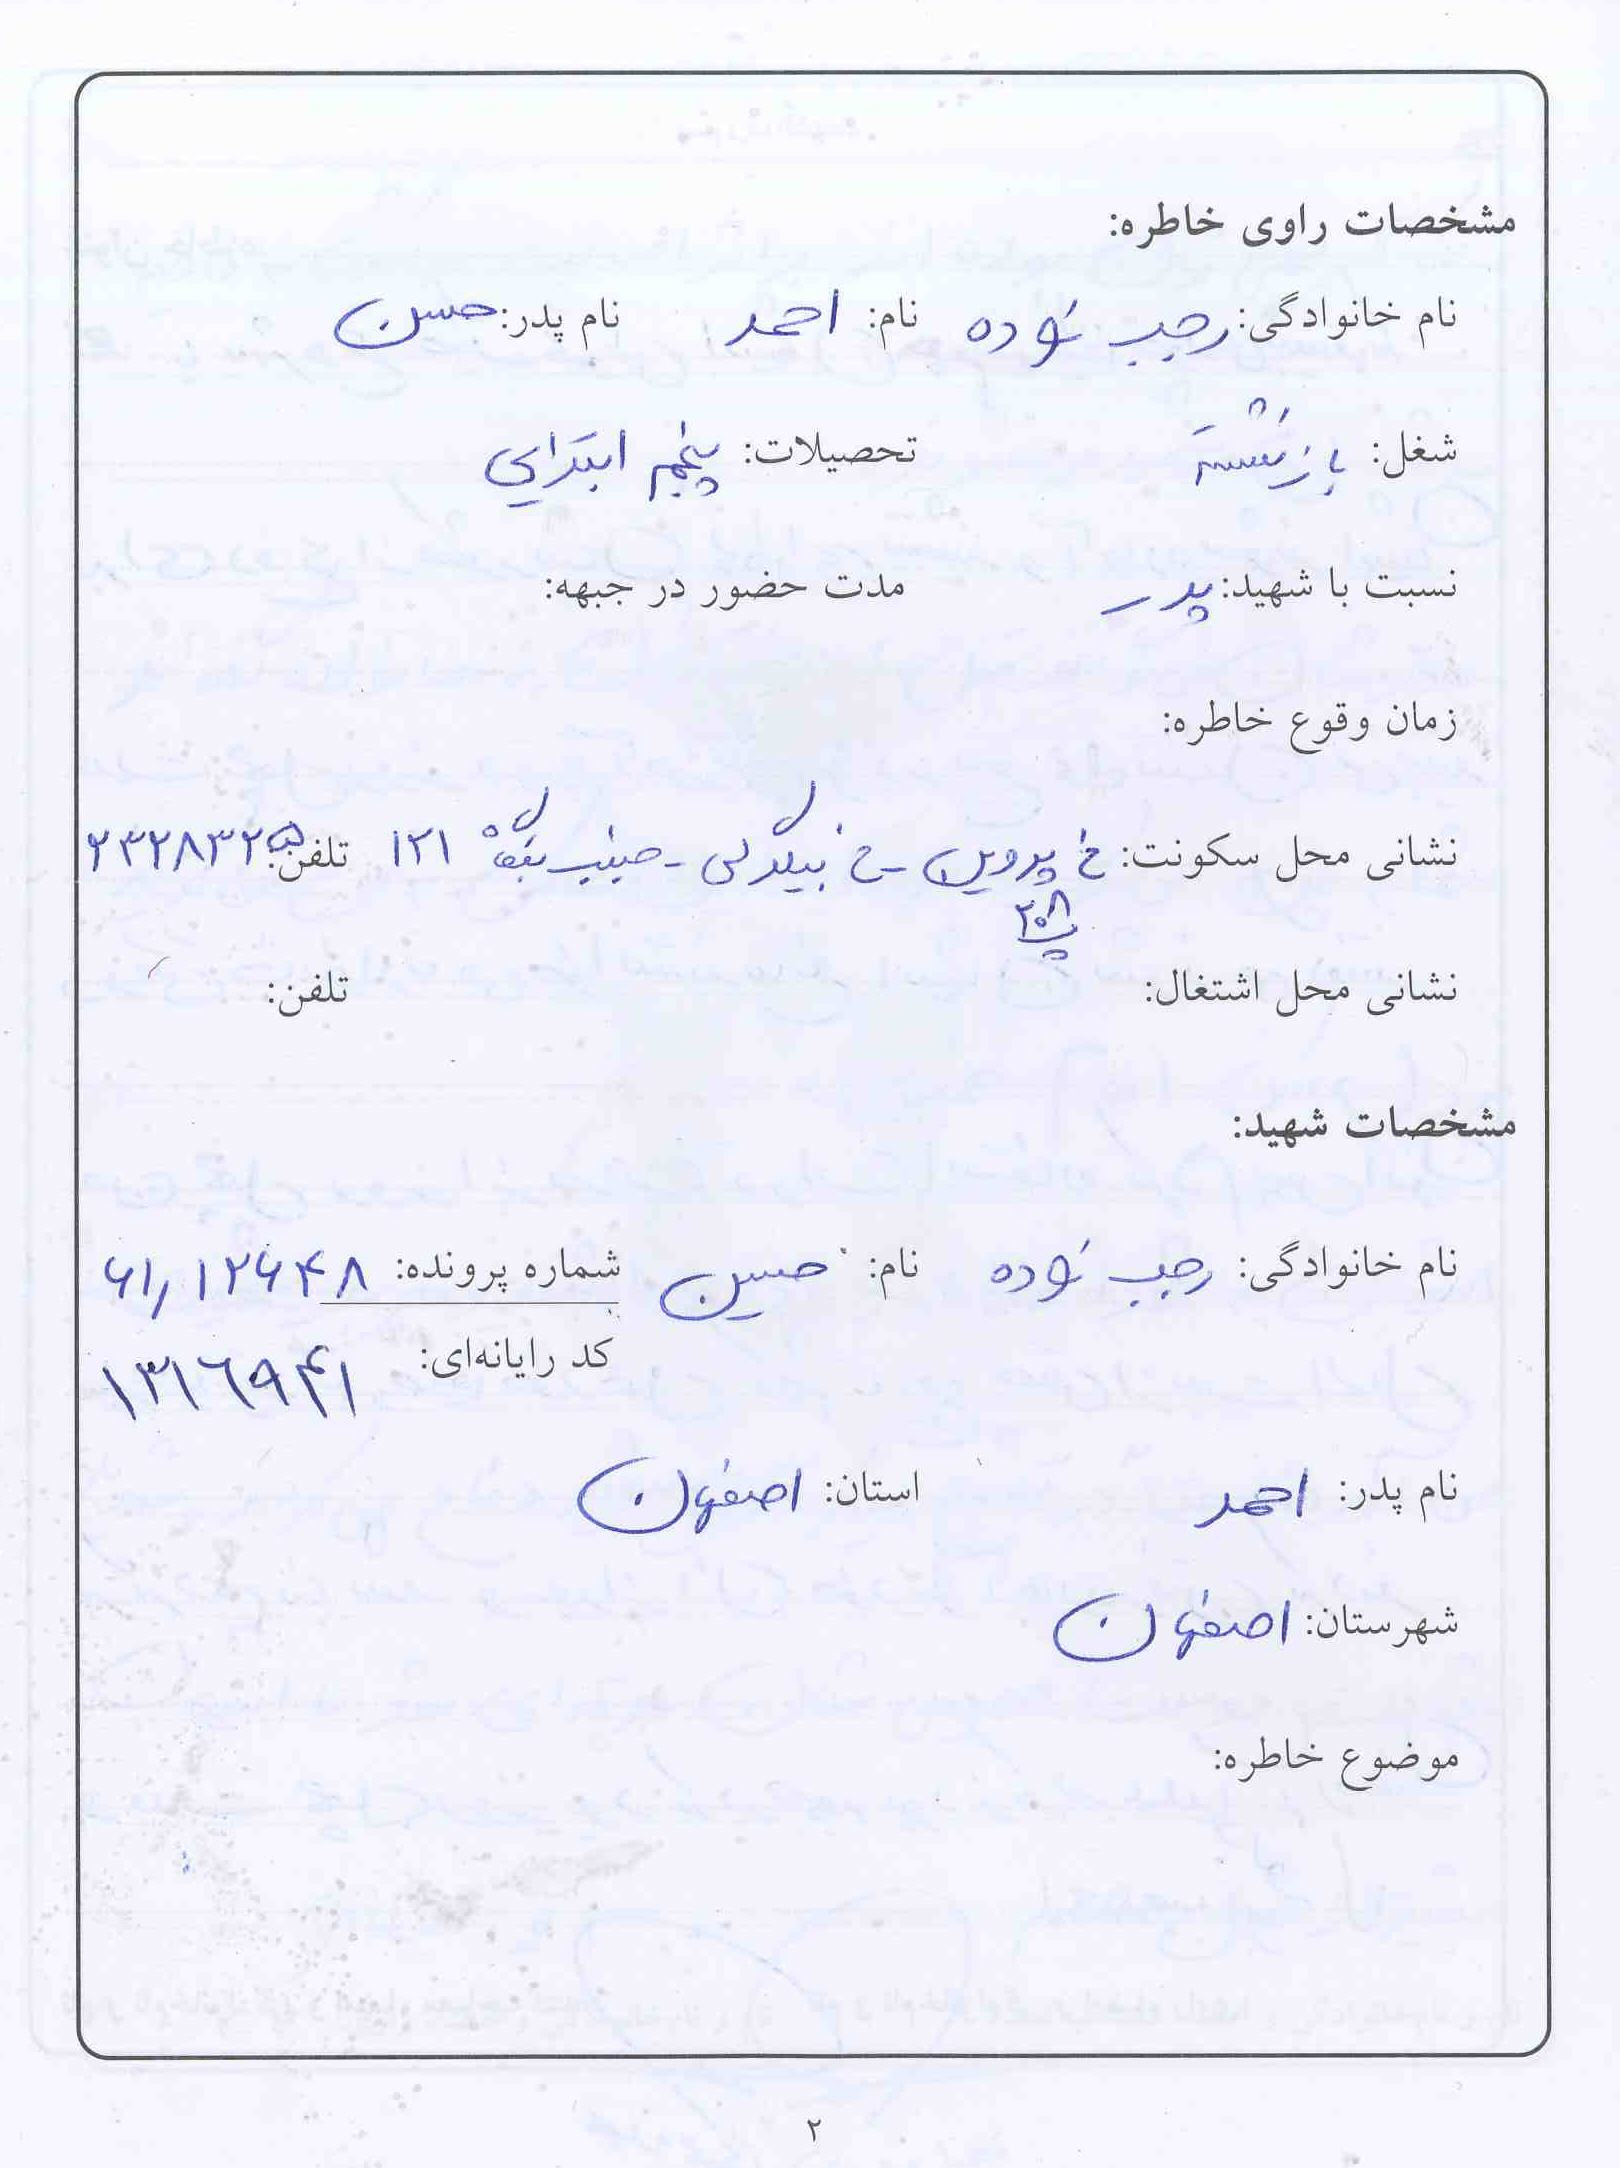 مشخصات راوی خاطره:
نام خانوادگی: رجب نوده نام: احمد نام پدر: حسن
شغل: بازنشسته تحصیلات: پنجم ابتدایی
نسبت با شهید: پدر مدت حضور در جبهه:
زمان وقوع خاطره:
نشانی محل سکونت: خ پروین - خ بیگدلی - جنب ۱۲۱ تلفن: ۲۳۲۸۳۲۵
پ ۲۰۸
نشانی محل اشتغال: تلفن:
مشخصات شهید:
نام خانوادگی: رجب نوده نام: حسین شماره پرونده: ۶۱/۱۲۶۴۸
کد رایانه‌ای: ۱۳۱۶۹۴۱
نام پدر: احمد استان: اصفهان
شهرستان: اصفهان
موضوع خاطره:
۲